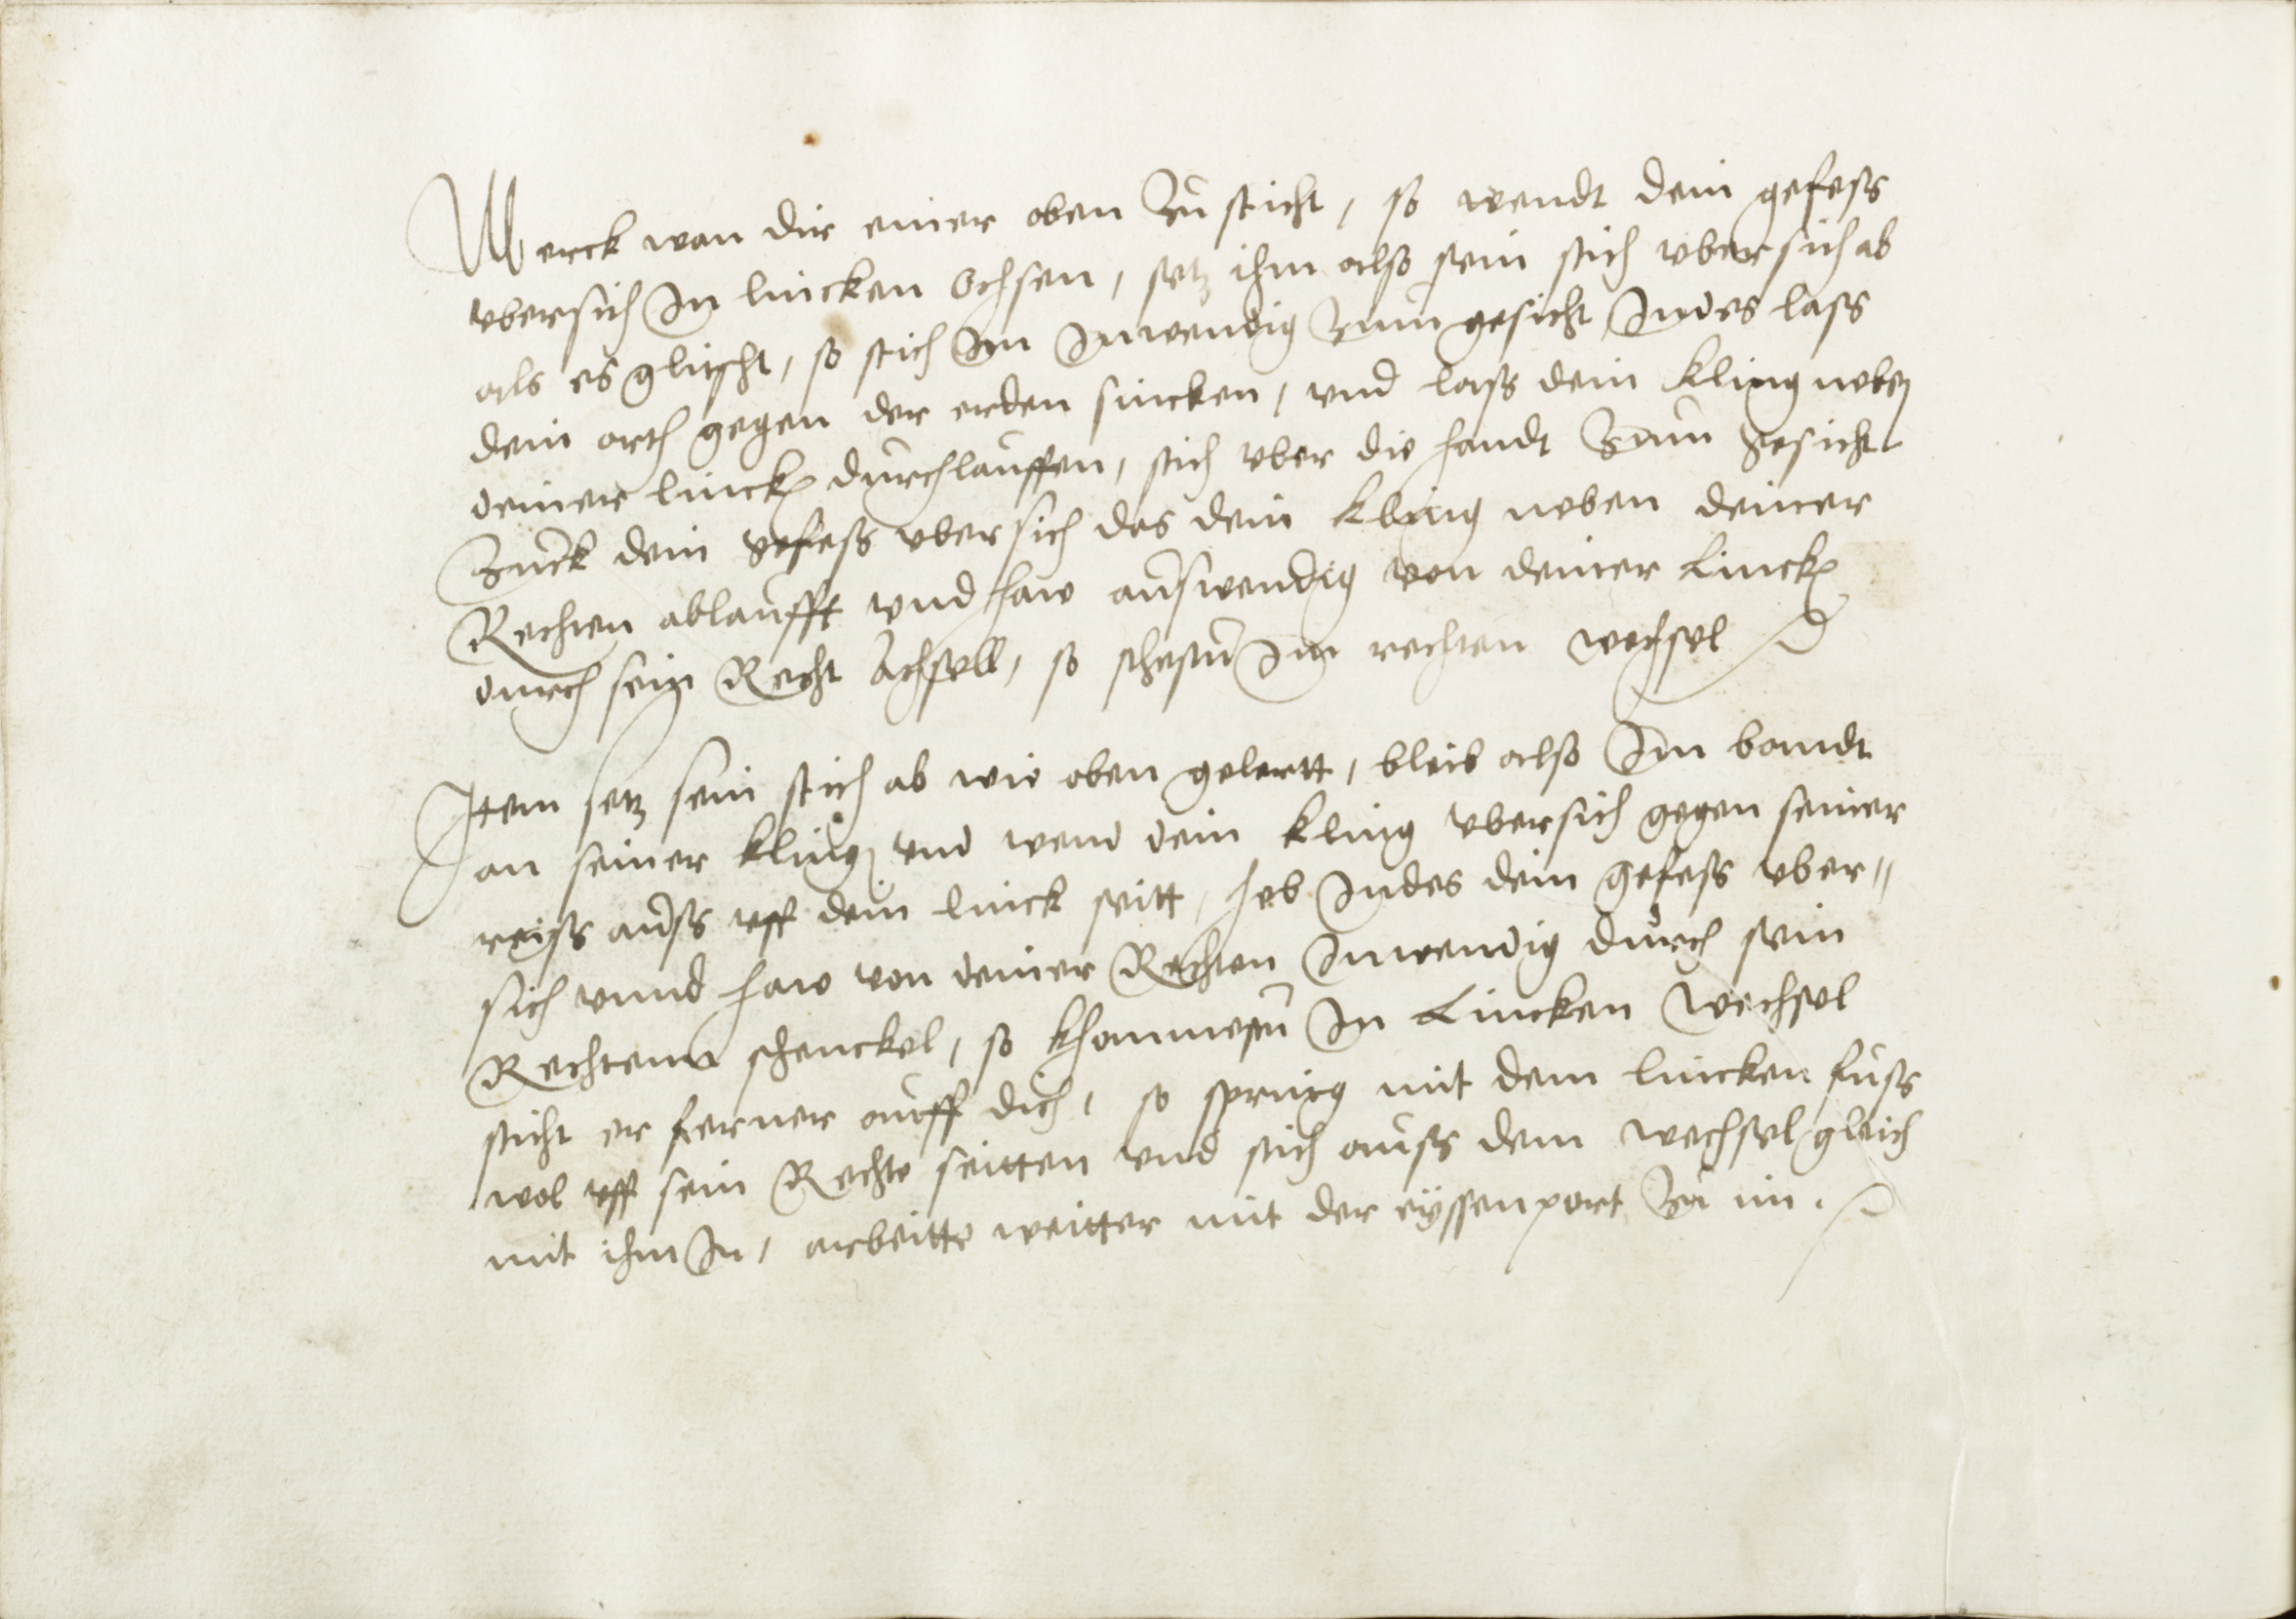 Merck wan dir einer oben Zu sticht, so wendt dein gefess
vbersich In lincken Ochsen, setz ihm also sein stich vbersich ab
als es glitscht, so stich Im Inwendig Zum gesicht Indes lass
dein orth gegen der erden sincken, vnd lass dein kling neben
deiner linck durchlauffen, stich vber die handt Zum gesicht
Zuck dein gefess vbersich das dein kling neben deiner
Rechten ablaufft vnd haw auswendig von deiner Linck
durch sein Recht Achsell, so stehstu Im rechten wechsel
Item setz sein stich ab wie oben gelertt, bleib also Im bandt
an seiner kling vnd wend dein kling vbersich gegen seiner
reiss auss vff dein linck seitt, heb Indes dein gefess vber"
sich vnnd haw von deiner Rechten Inwendig durch sein
Rechtenn schenckel, so khommestu In Lincken wechsel
sticht er ferner auff dich, so spring mit dem lincken fuss
wol vff sein Rechte seitten vnd stich auss dem wechsel gleich
mit ihm In, arbeitte weitter mit der eyssenport Zu im.